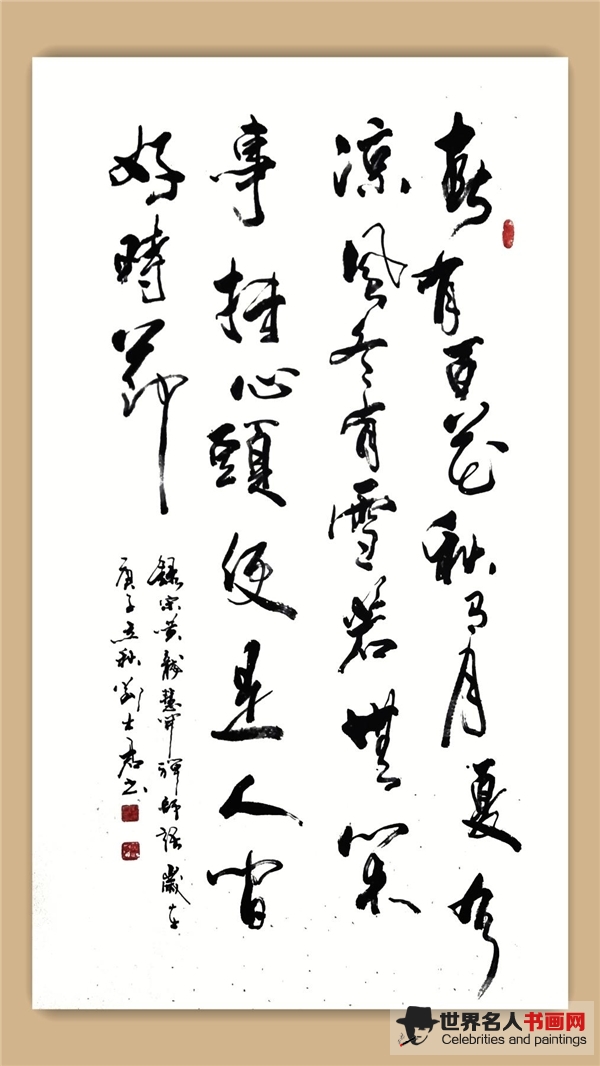 春有百花秋有月夏有
凉風冬有雪若無閑
事掛心頭便是人間
好時節
錄宋黄龍慧開禪師語歲在
庚子秋劉士君书
世界名人书画网
Celebrities and paintings